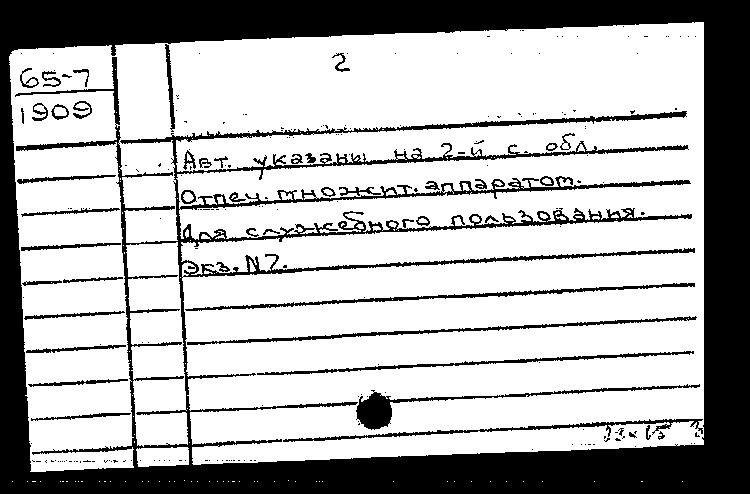 65-7
1909
2
Авт. указаны на 2-й с. обл.
Отпеч. множит. аппаратом.
Для служебного пользования.
Экз. N7.